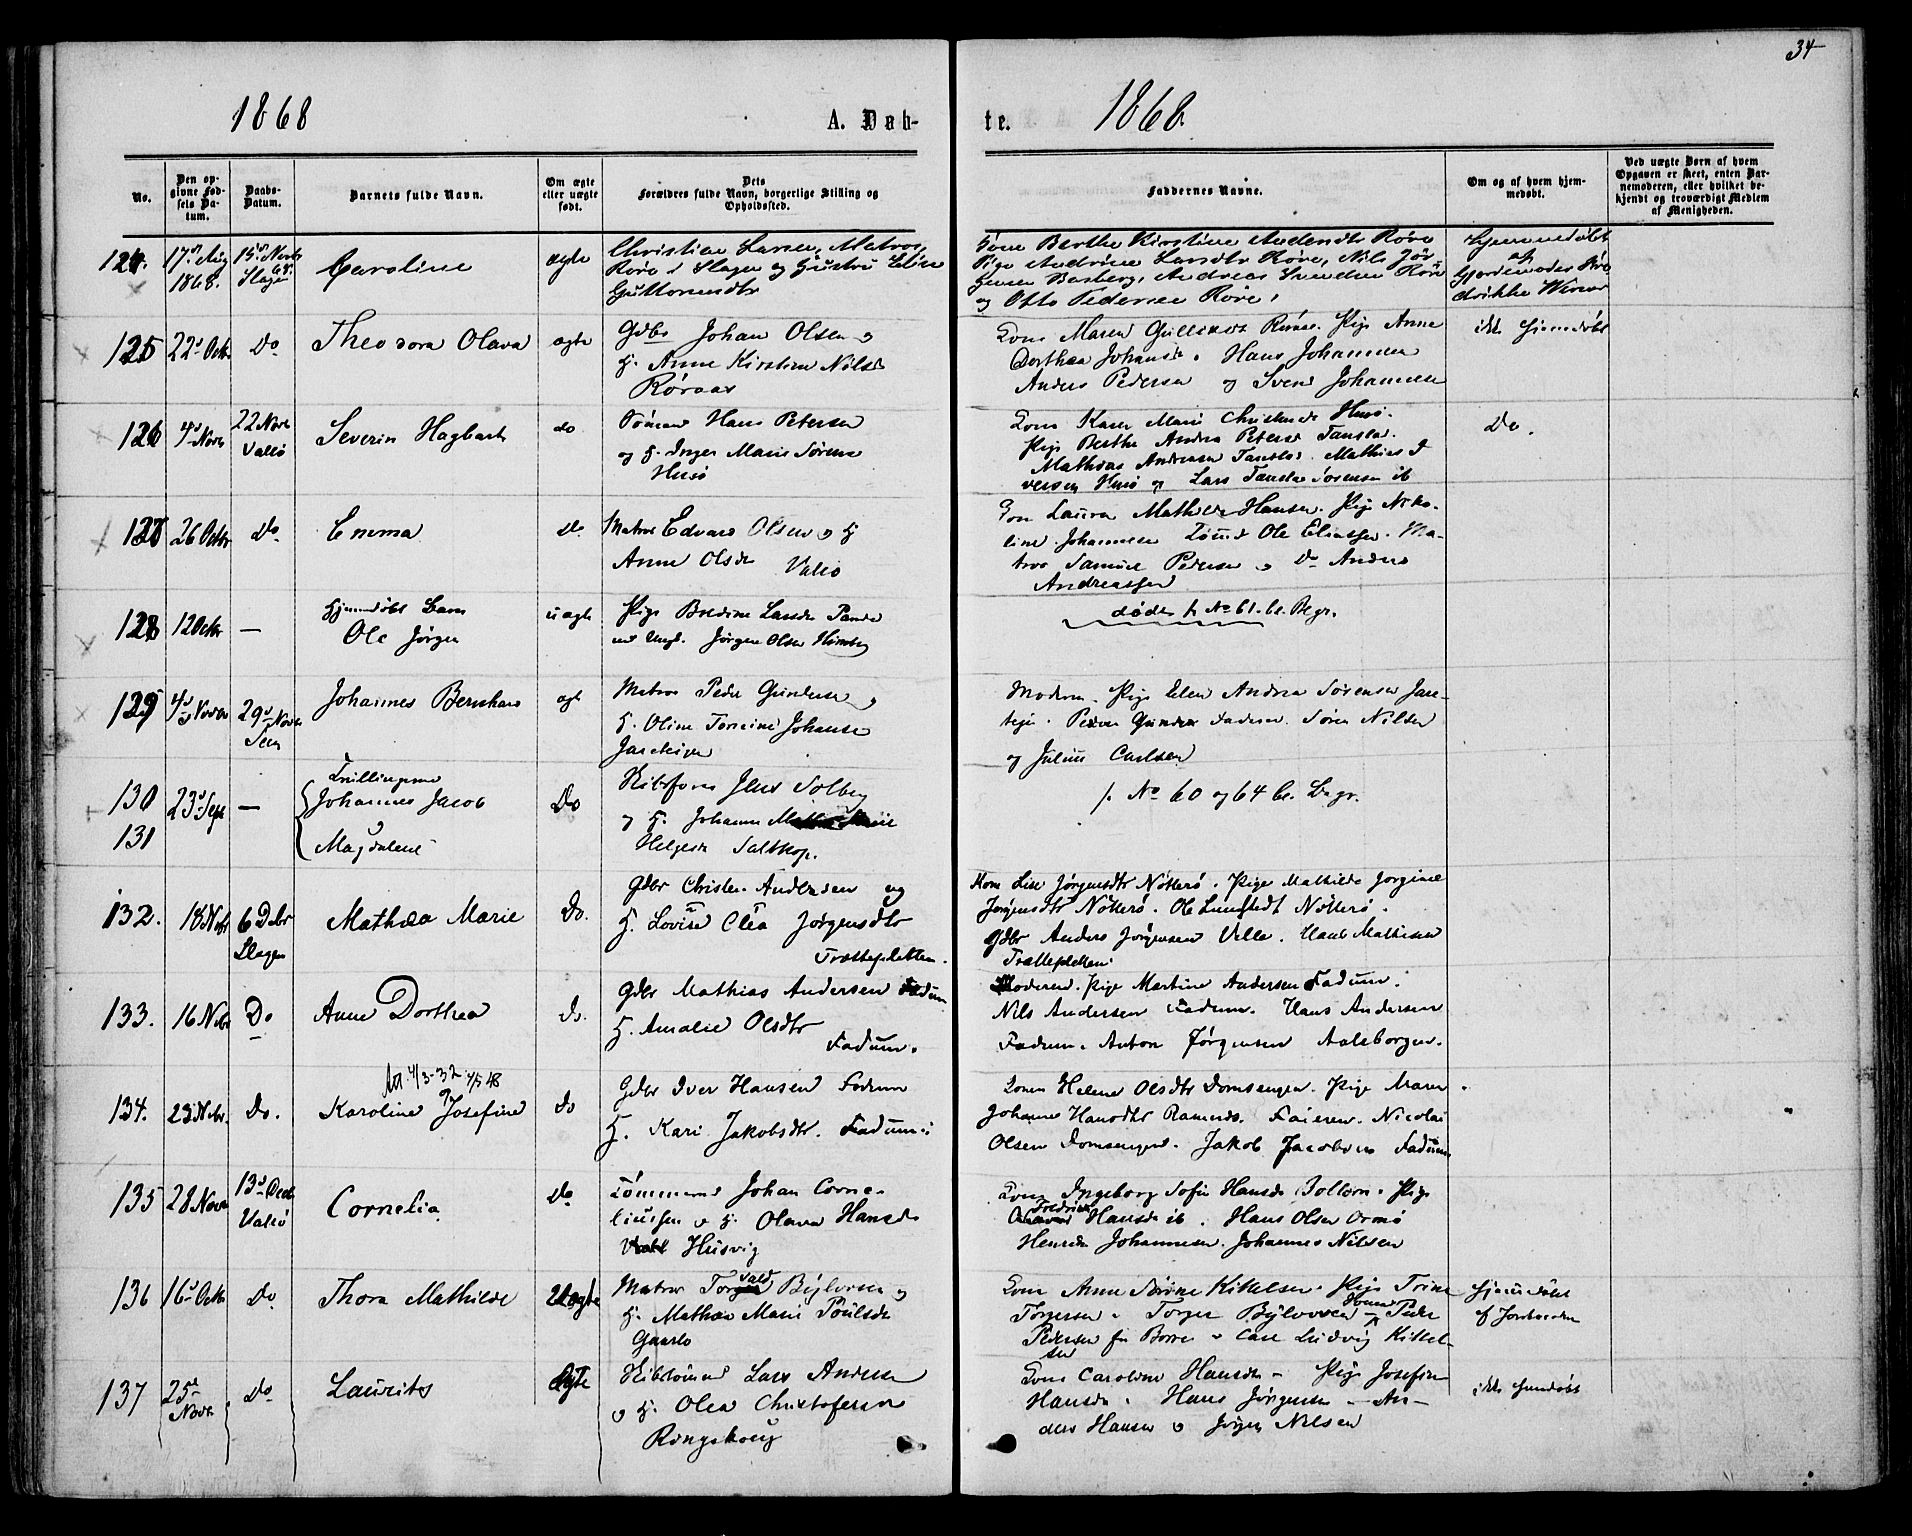 34
1868 A. Døb- te. 1868.
No.
Den op-
givne Fød-
sels Da-
tum.
Daabs-
Datum.
Barnets fulde Navn.
Om ægte
eller uægte
født.
Dets
Forældres fulde Navn, borgerlige Stilling og
Opholdssted.
Faddernes Navne.
Om og af hvem hjem-
medøbt.
Ved uægte Børn af hvem
Opgaven er skeet, enten Bar-
nemoderen, eller hvilket be-
kjendt og troværdigt Medlem
af Menigheden.
124. 17 Aug
1868. 15 Novb
Slagn
Caroline
ægte
Christian Larsen, Matros,
Røre i Slagen og Hustru Eline
Guttormsdtr
Kone Berthe Kirstine Andersdtr Røre
Pige Andrine Larsdtr Røre, Nils Jør-
gensen Basberg, Andreas Svendsen Røre
og Otto Pedersen Røre,
Hjemmedøbt
af
Gjordemoder Fre
drikke Werner
125 22 Octr Do
Theodora Olava
ægte
Gdbr Johan Olsen og
H. Anne Kirstine Nilsd
Røraas
Kone Maren Røraas. Pige Anne
Dorthea Johansd. Hans Johannsen
Anders Pedersen og Svend Johannsen
ikke hjemdøbt
126 4 Novr 22 Novr
Valø
Severin Hagbarth
do
Sømand Hans Petersen
og H. Inger Marie Sørens
Husø
Kone Karen Marie Christensd Husø.
Pige Berthe Andrea Petersd
Mathias Andreasen Mathias I
versen Husø og Lars Sørensen ib
Do.
127 26 Octbr Do
Emma
do.
Matros Edvard Olsen og H
Anne Olsdr Valø
Kone Laura Mathilde Hansen. Pige Niko-
line Johannesen Ole Eliassen. Ma-
tros Samuel Pedersen og Do Anders
Andreassen
128 12 Octr —
Hjemdøbt Barn
Ole Jørgen
uægte
Pige Larsdr
med Ungk. Jørgen Olsen
døde f. No 61. bl. Begr.
129 4 Novbr 29 Novr
Sem
Johannes Bernhard
ægt
Matros Peder Gundersen og
H. Oline Johansen
Moderen. Pige Elen Andrea Sørensen Jare-
teigen. Gunder Søren Nilsen
og Julius Carlsen
130
131
23 Sept —
Tvillingerne
Johannes Jacob
og
Magdalene
Do
Jens Solberg
og H. Johanne
Helgesdr Saltkop.
f. No 60 og 64 bl. Begr.
132. 18 Nvbr 6 Debr
Slagen
Mathea Marie
Do.
Gdbr Christen Andersen og
H. Lovise Clea Jørgensdtr
Trætteplatten.
Kone Lise Jørgensdtr Nøtterø. Pige Mathilde Jorgine
Jørgensdtr Nøtterø. Ole Lundstedt Nøtterø.
Gdbr Anders Jørgensen Velle. Hans Mathisen
Trætteplatten.
133. 16 Nvbr Do
Anne Dorthea
do.
Gdbr Mathias Andersen Fadum
H. Amalie Olsdtr
Fadum.
Moderen. Pige Martine Andersen Fadum.
Nils Andersen Fadum. Hans Andersen
Fadum. Anton Jørgensen Aalsborgen.
Att. 4/3-32 4/5 48
134. 23 Nvbr. Do.
Karoline Josefine
do
Gdbr Iver Hansen Fadum
H. Kari Jakobsdtr. Fadum.
Konen Helene Olsdtr Domsengen. Pige Maren
Johanne Hansdtr Nicolai
Olsen Domsengen. Jakob Jacobsens Fadum.
135 28 Novr 13 Decb
Valø
Cornelia
Do
Tømmermd Johan Corne-
liussen og H. Olava Hansdr
Husvig
Kone Ingeborg Sofie Hansdr Bollærn. Pige
Fredrikke
Hansdr ib. Hans Olsen Ormø
Henrik Johannesen. Johannes Nilsen
136 16 Octb Do
Thora Mathilde
Uægte
Matros Torvald Bylovsen og
H. Mathea Marie Poulsdr
Kone Anne Sørine Kittelsen. Pige Trine
Torgersen. Torger Bylovsen Peder
Pedersen fra Borre og Carl Ludvig Kittel-
sen
Hjemmedøbt
af
137 25
Novr. Do
Laurits
Ægte
Lars Andersen
og H. Olea Christofersen
Ringshoug
Kone Caroline Hansdr — Pige Josefine
Hansdr. Hans Jørgensen — An-
ders Hansen og Jørgen Nilsen
ikke hjemdøbt